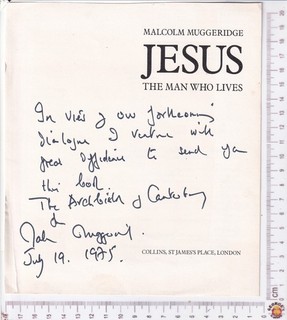 MALCOLM MUGGERIDGE
JESUS
THE MAN WHO LIVES
In view of our forthcoming
dialogue I venture with
great diffidence to send you
this book.
The Archbishop of Canterbury
Muggeridge
July 19. 1975.
COLLINS, ST JAMES'S PLACE, LONDON